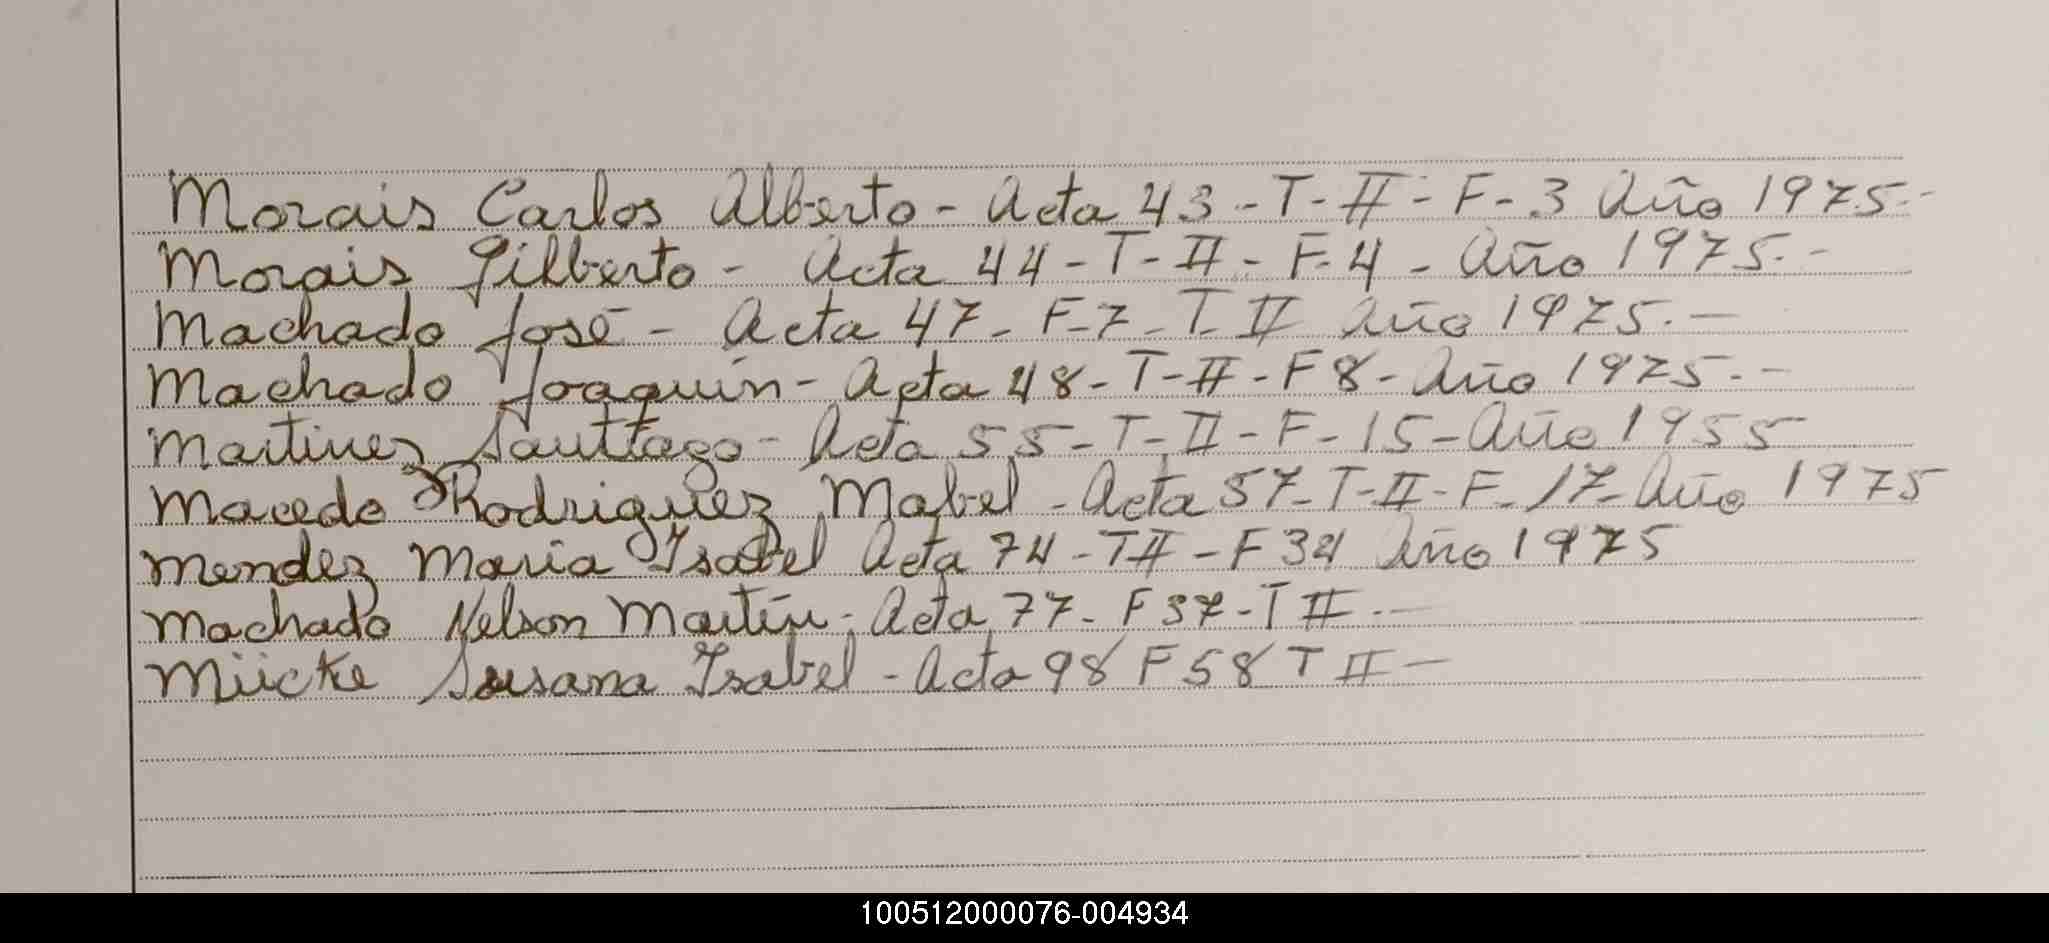 Morais Carlos Alberto - Acta 43 - T - II - F - 3 Año 1975.-
Morais Gilberto - Acta 44 - T - II - F. 4 - Año 1975.-
Machado José - Acta 47 - F - 7 - T - II Año 1975.-
Machado Joaquin - Acta 48 - T - II - F 8 - Año 1975.-
Martinez Santiago - Acta 55 - T - II - F - 15 - Año 1955
Macedo Rodriguez Mabel - Acta 57 - T - II - F - 17 - Año 1975
Mendez Maria Ysabel Acta 74 - T II - F 34 Año 1975
Machado Nelson Martín - Acta 77 - F 37 - T II.-
Miicke Susana Ysabel - Acta 98 F 58 T II -
100512000076-004934